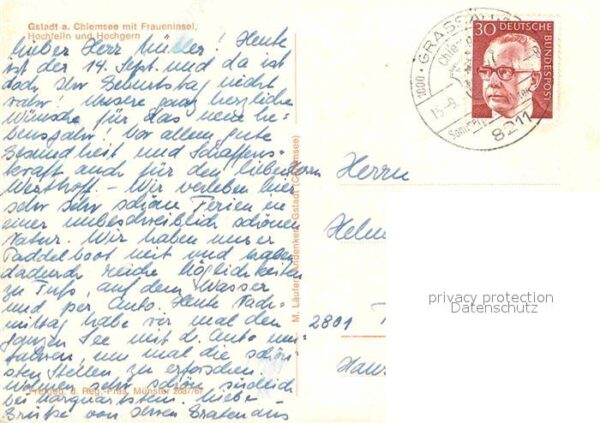 Gstadt a. Chiemsee mit Fraueninsel,
Hochfelln und Hochgern
Lieber Herr Müller! Heute
ist der 14. Sept. und da ist
doch Ihr Geburtstag nicht
wahr! Unsere ganz herzliche
Wünsche für das neue Le-
bensjahr! Vor allem gute
Gesundheit und Schaffens-
kraft auch für den lieben Herrn
Westhoff. - Wir verleben hier
sehr sehr schöne Ferien in
einer unbeschreiblich schönen
Natur. Wir haben unser
Paddelboot mit und haben
dadurch reiche Möglichkeiten
zu Fuß, auf dem Wasser
und per Auto. Heute Nach-
mittag habe wir mal den
ganzen See mit d. Auto um-
fahren, um mal die schön-
sten Stellen zu erforschen.
Wohnen sehr schön, südlich
bei Marquartstein. Liebe
Grüße von Ihren
Freigeg. d. Reg.-Präs. Münster
M. Läufer, Andenken, Gstadt (Chiemsee)
30 DEUTSCHE
BUNDESPOST
GRASSAU
15.-9.
8211
Herrn
2801
privacy protection
Datenschutz